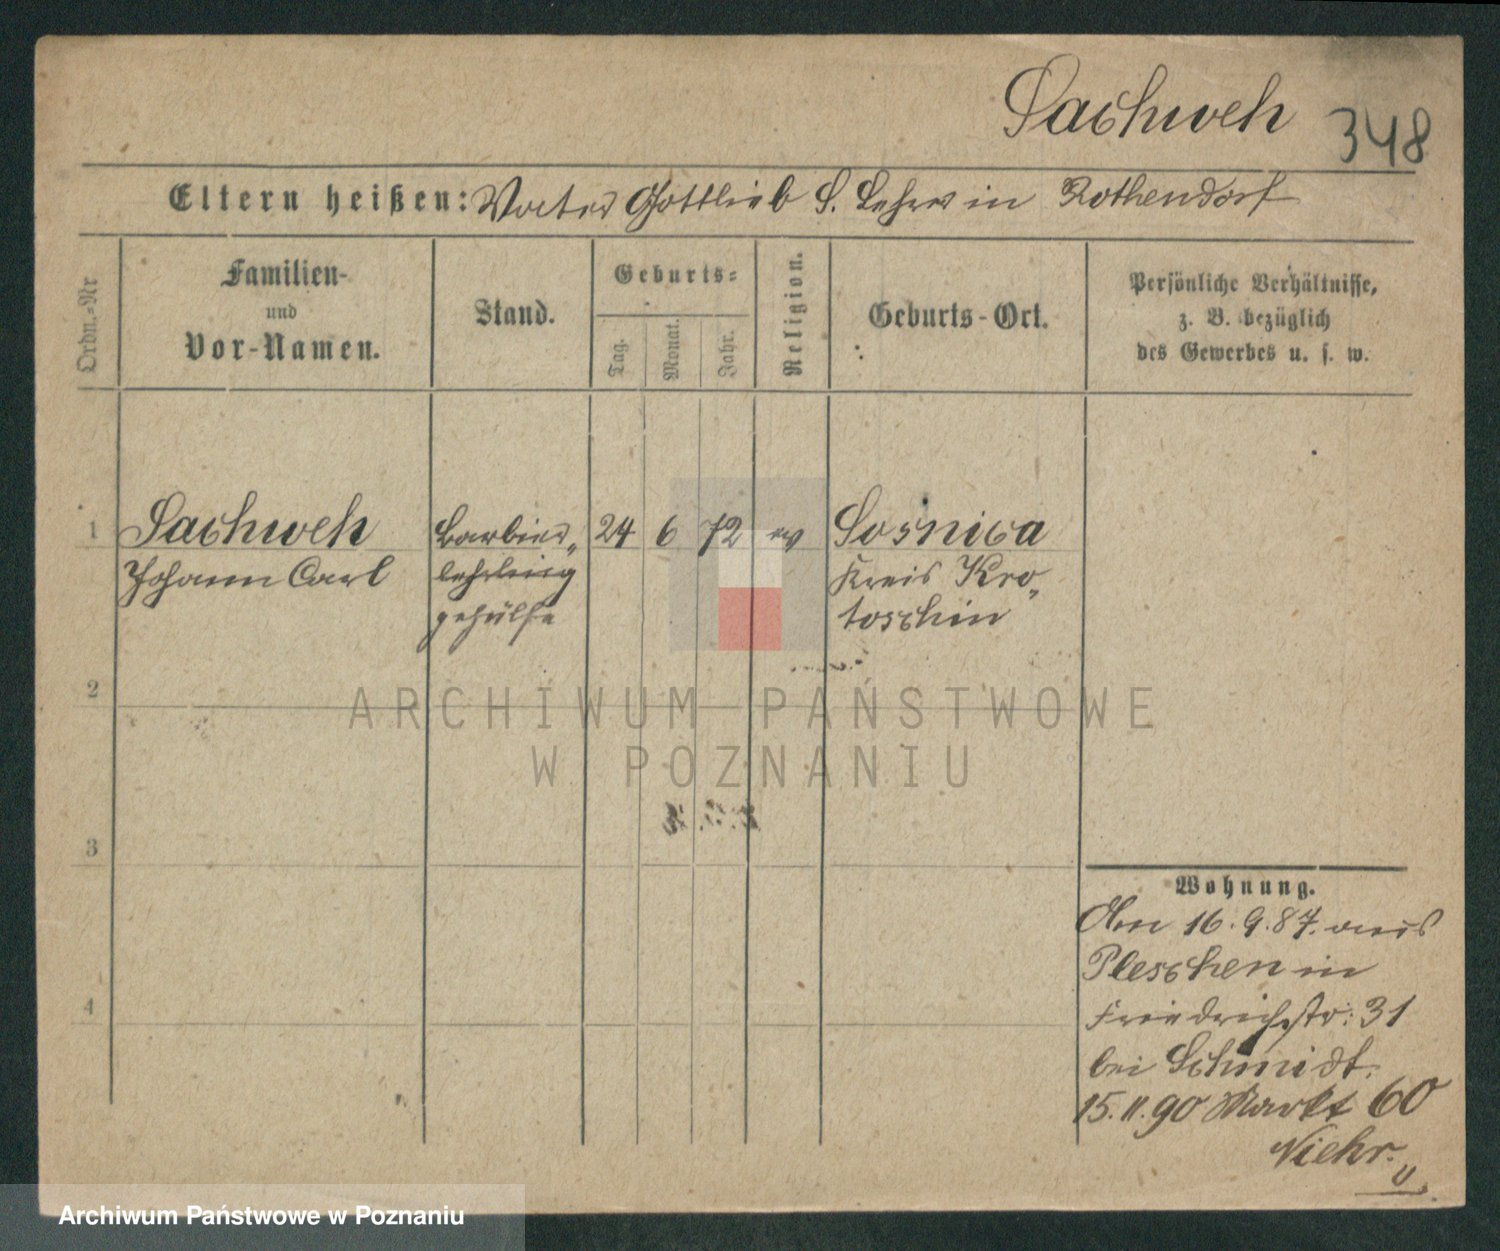 Sachweh 348
Eltern heißen: Vater Gottlieb S. Lehrer in Rothendorf
Ordn.-Nr
Familien-
und
Vor-Namen.
Stand.
Geburts-
Tag.
Monat.
Jahr.
Religion.
Geburts-Ort.
Persönliche Verhältnisse,
z. B. bezüglich
des Gewerbes u. s. w.
1 Sachweh Barbier„ 24 6 72 ev Sosnica
Johann Carl lehrling Kreis Kro„
gehülfe toschin
2
ARCHIWUM PAŃSTWOWE
W POZNANIU
3
Wohnung.
Am 16.9.87. aus
Pleschen in
4
Friedrichstr: 31
bei Schmidt.
15.11.90 Markt 60
Viehr.
Archiwum Państwowe w Poznaniu